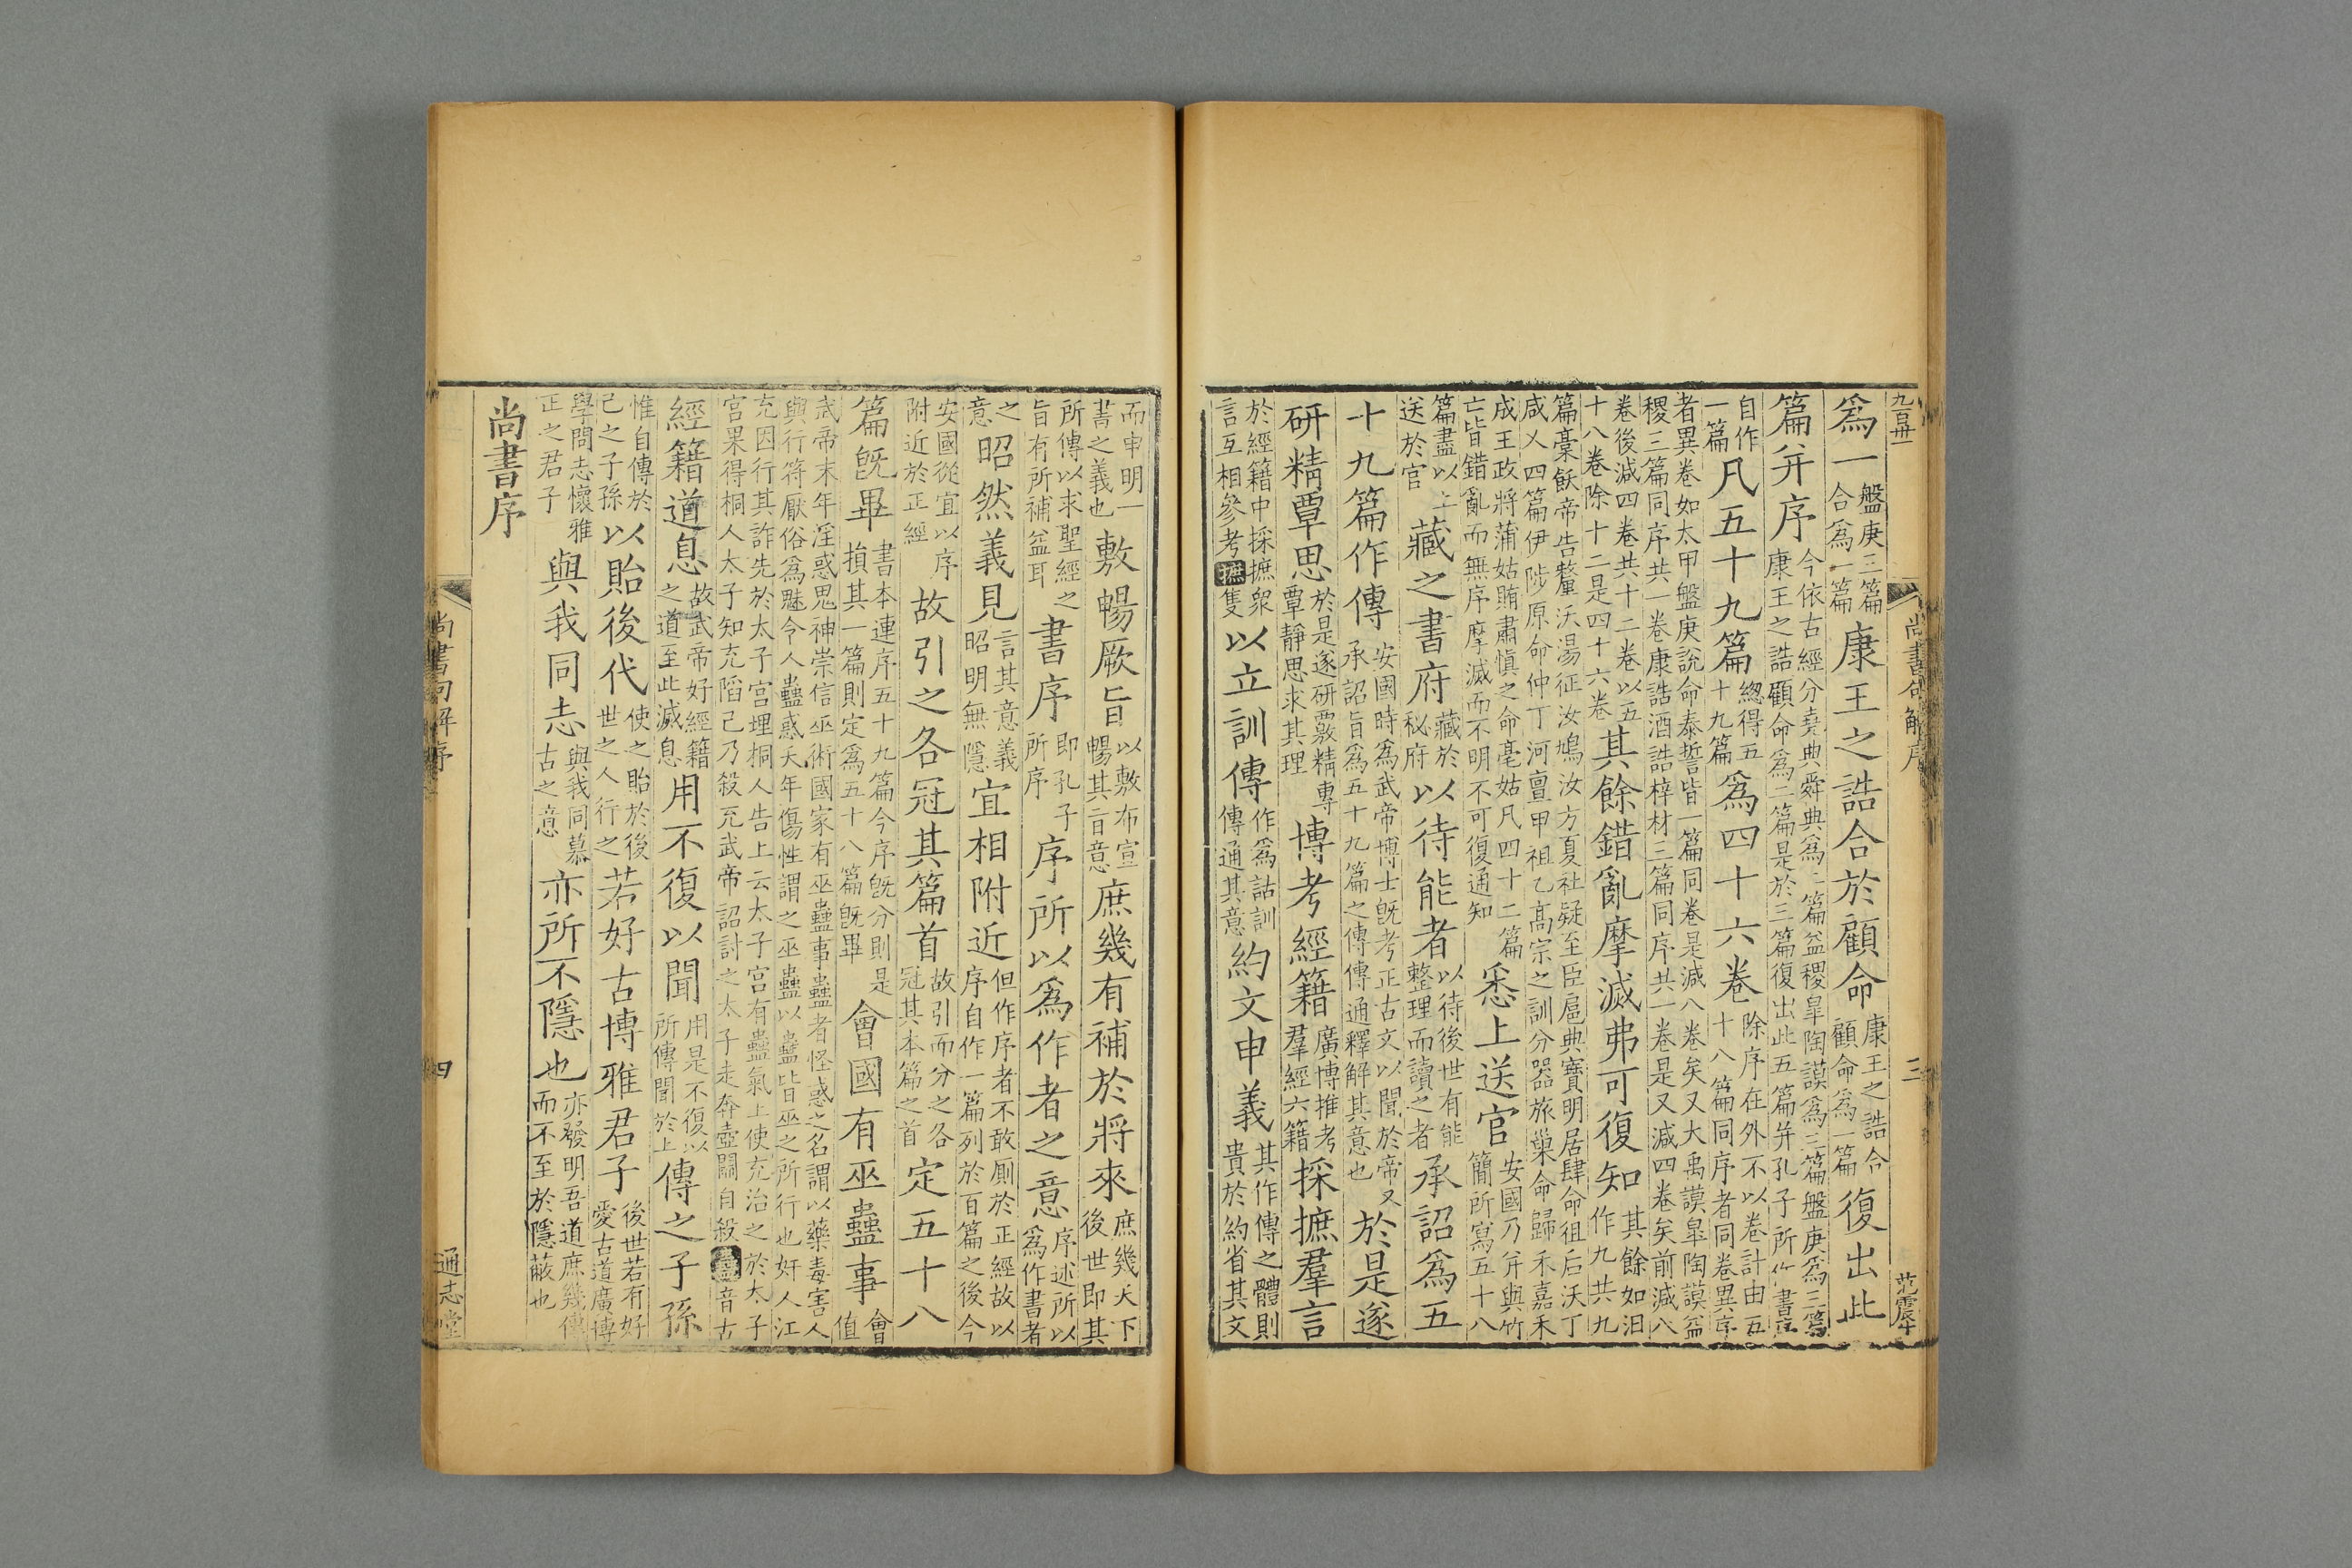 九百卅一
尚書句解序
三
范震
爲一盤庚三篇合爲一篇康王之誥合於顧命康王之誥合顧命爲一篇復出此
篇并序今依古經分堯典舜典爲二篇益稷皐陶謨爲三篇盤庚爲三篇康王之誥顧命爲二篇是於三篇復出此五篇并孔子所作書序
自作一篇凡五十九篇總得五十九篇爲四十六卷除序在外不以卷計由五十八篇同序者同卷異序
者異卷如太甲盤庚說命泰誓皆一篇同卷是減八卷矣又大禹謨皐陶謨益稷三篇同序共一卷康誥酒誥梓材三篇同序共一卷是又減四卷矣前減八
卷後減四卷共十二卷以五十八卷除十二是四十六卷其餘錯亂摩滅弗可復知其餘如汩作九共九
篇稾飫帝告釐沃湯征汝鳩汝方夏社疑至臣扈典寶明居肆命徂后沃丁咸乂四篇伊陟原命仲丁河亶甲祖乙高宗之訓分器旅巢命歸禾嘉禾
成王政將蒲姑賄肅愼之命亳姑凡四十二篇亡皆錯亂而無序摩滅而不明不可復通知悉上送官安國乃并與竹簡所寫五十八
篇盡以上送於官藏之書府藏於秘府以待能者以待後世有能整理而讀之者承詔爲五
十九篇作傳安國時爲武帝博士旣考正古文以聞於帝又承詔旨爲五十九篇之傳傳通釋解其意也於是遂
研精覃思於是遂研覈精專覃靜思求其理博考經籍廣博推考羣經六籍採摭羣言
於經籍中採摭衆言互相參考摭隻以立訓傳作爲詁訓傳通其意約文申義其作傳之體則貴於約省其文
而申明一書之義也敷暢厥旨以敷布宣暢其旨意庶幾有補於將來庶幾天下後世即其
所傳以求聖經之旨有所補益耳書序即孔子所序序所以爲作者之意序述所以爲作書者
之意昭然義見言其意義昭明無隱宜相附近但作序者不敢厠於正經故以序自作一篇列於百篇之後今
安國從宜以序附近於正經故引之各冠其篇首故引而分之各冠其本篇之首定五十八
篇旣畢書本連序五十九篇今序旣分則是損其一篇則定爲五十八篇旣畢會國有巫蠱事會値
武帝末年淫惑鬼神崇信巫術國家有巫蠱事蠱者怪惑之名謂以藥毒害人與行符厭俗爲魅令人蠱惑夭年傷性謂之巫蠱以蠱皆巫之所行也奸人江
充因行其詐先於太子宮埋桐人告上云太子宮有蠱氣上使充治之於太子宮果得桐人太子知充陷己乃殺充武帝詔討之太子走奔壺關自殺蠱音古
經籍道息故武帝好經籍之道至此滅息用不復以聞用是不復以所傳聞於上傳之子孫
惟自傳於己之子孫以貽後代使之貽於後世之人行之若好古博雅君子後世若有好愛古道廣博
學問志懷雅正之君子與我同志與我同慕古之意亦所不隱也亦發明吾道庶幾傳而不至於隱蔽也
尚書序
尚書句解序
四
通志堂